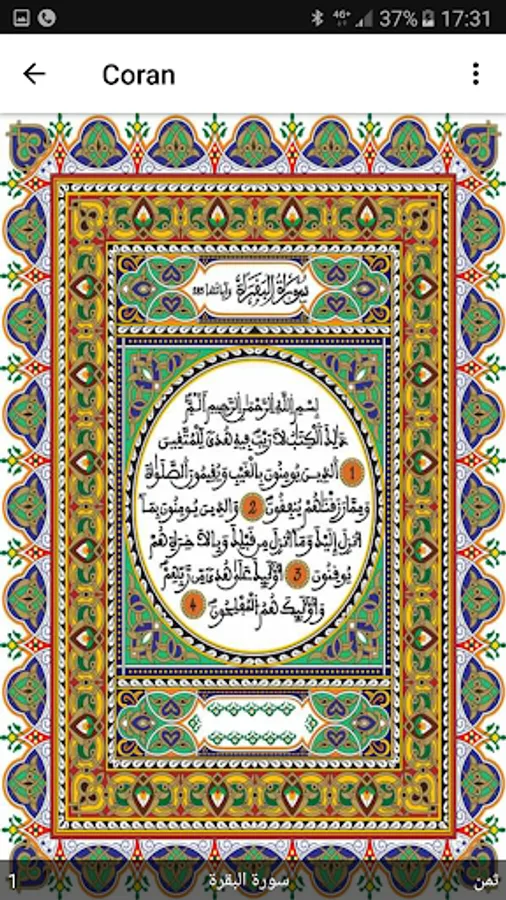 4G+ 37% 17:31
Coran
سورة البقرة وآياتها 285
بسم الله الرحمن الرحيم الم
ذلك الكتاب لا ريب فيه هدى للمتقين
1 الذين يومنون بالغيب ويقيمون الصلوة
ومما رزقنهم ينفقون 2 والذين يومنون بما
انزل إليك وما انزل من قبلك وبالاخرة هم
يوقنون 3 أولئك على هدى من ربهم
وأولئك هم المفلحون 4
1 سورة البقرة ثمن